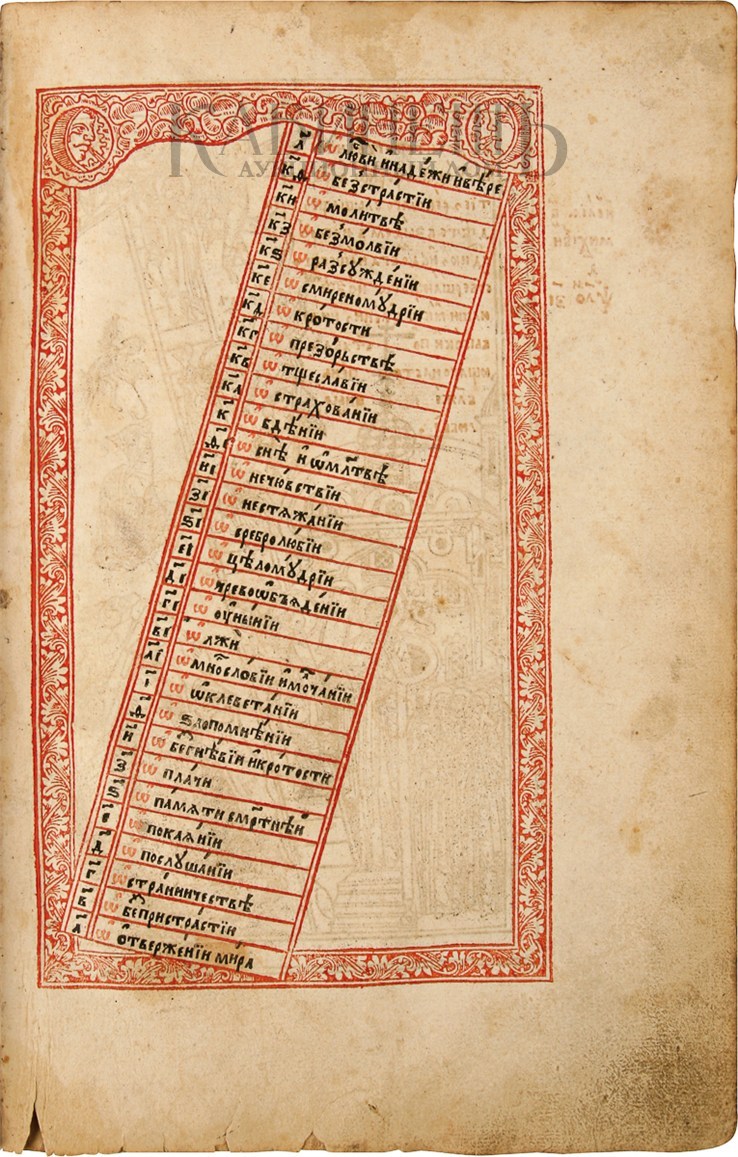 КАБИНЕТЪ
АУКЦИОННЫЙ ДОМ
л҃ ѡ҃ любви и҆ надежи и҆ вѣре
к҃ѳ ѡ҃ безстра́стїи
к҃и ѡ҃ моли́твѣ
к҃з ѡ҃ безмо́лвїи
к҃ѕ ѡ҃ разсꙋжде́нїи
к҃е ѡ҃ смиреномꙋ́дрїи
к҃д ѡ҃ кротости
к҃г ѡ҃ презо́рьствѣ
к҃в ѡ҃ тщесла́вїи
к҃а ѡ҃ страхова́нїи
к҃ ѡ҃ бдѣ́нїи
ѳ҃і ѡ҃ снѣ и҆ ѡ҆ мл҃твѣ
и҃і ѡ҃ нечю́вствїи
з҃і ѡ҃ нестѧжа́нїи
ѕ҃і ѡ҃ сребролю́бїи
е҃і ѡ҃ цѣломꙋ́дрїи
д҃і ѡ҃ чревоѡб̾ѧде́нїи
г҃і ѡ҃ ᲂу҆ны́нїи
в҃і ѡ҃ лжѝ
а҃і ѡ҃ мно́гословїи и҆ молча́нїи
і҃ ѡ҃ ѡ҆клевета́нїи
ѳ҃ ѡ҃ ѕлопомнѣ́нїи
и҃ ѡ҃ безгнѣ́вїи и҆ кротости
з҃ ѡ҃ пла́чи
ѕ҃ ѡ҃ па́мѧти сме́ртнѣй
е҃ ѡ҃ покаѧ́нїи
д҃ ѡ҃ послꙋша́нїи
г҃ ѡ҃ стра́нничествѣ
в҃ ѡ҃ безпристра́стїи
а҃ ѡ҃ ѿверже́нїи ми́ра